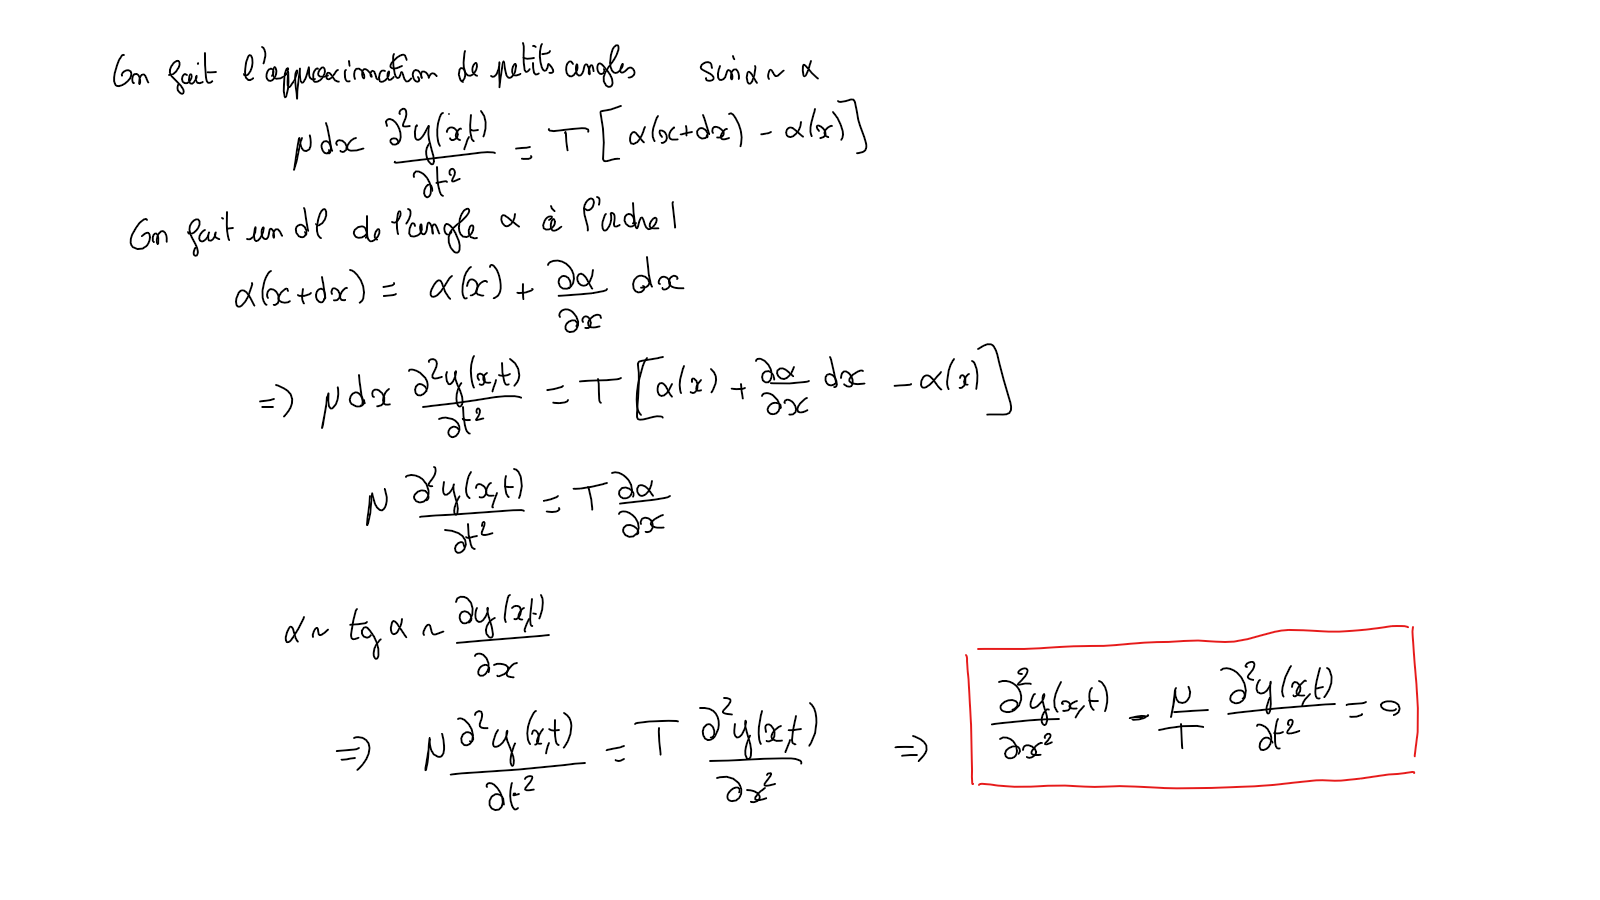 On fait l'approximation de petits angles sin α ~ α
μ dx ∂²y(x,t)/∂t² = T [α(x+dx) - α(x)]
On fait un dl de l'angle α à l'ordre 1
α(x+dx) = α(x) + ∂α/∂x dx
=> μ dx ∂²y(x,t)/∂t² = T [α(x) + ∂α/∂x dx - α(x)]
μ ∂²y(x,t)/∂t² = T ∂α/∂x
α ~ tg α ~ ∂y(x,t)/∂x
=> μ ∂²y(x,t)/∂t² = T ∂²y(x,t)/∂x² => ∂²y(x,t)/∂x² - μ/T ∂²y(x,t)/∂t² = 0